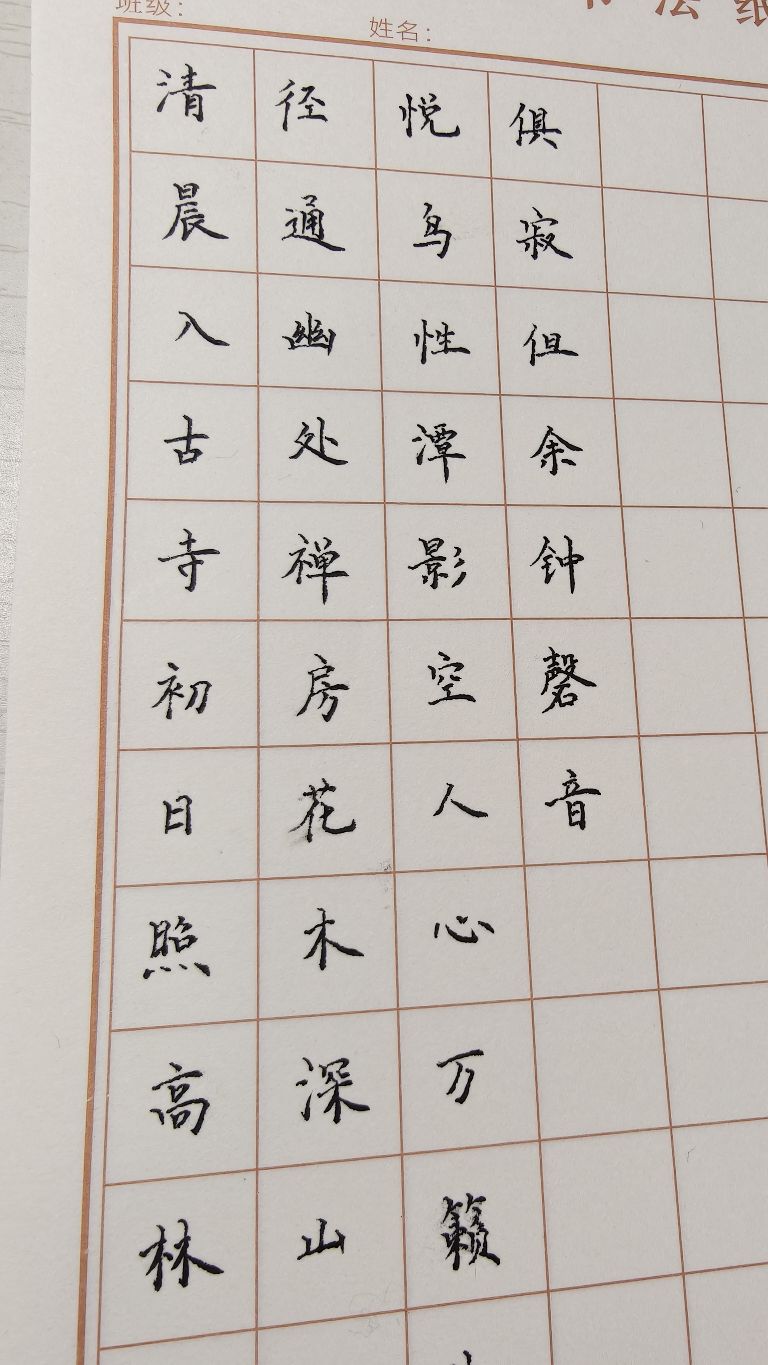 书法纸
班级：
姓名：
清晨入古寺初日照高林
径通幽处禅房花木深山
悦鸟性潭影空人心万籁
俱寂但余钟磬音